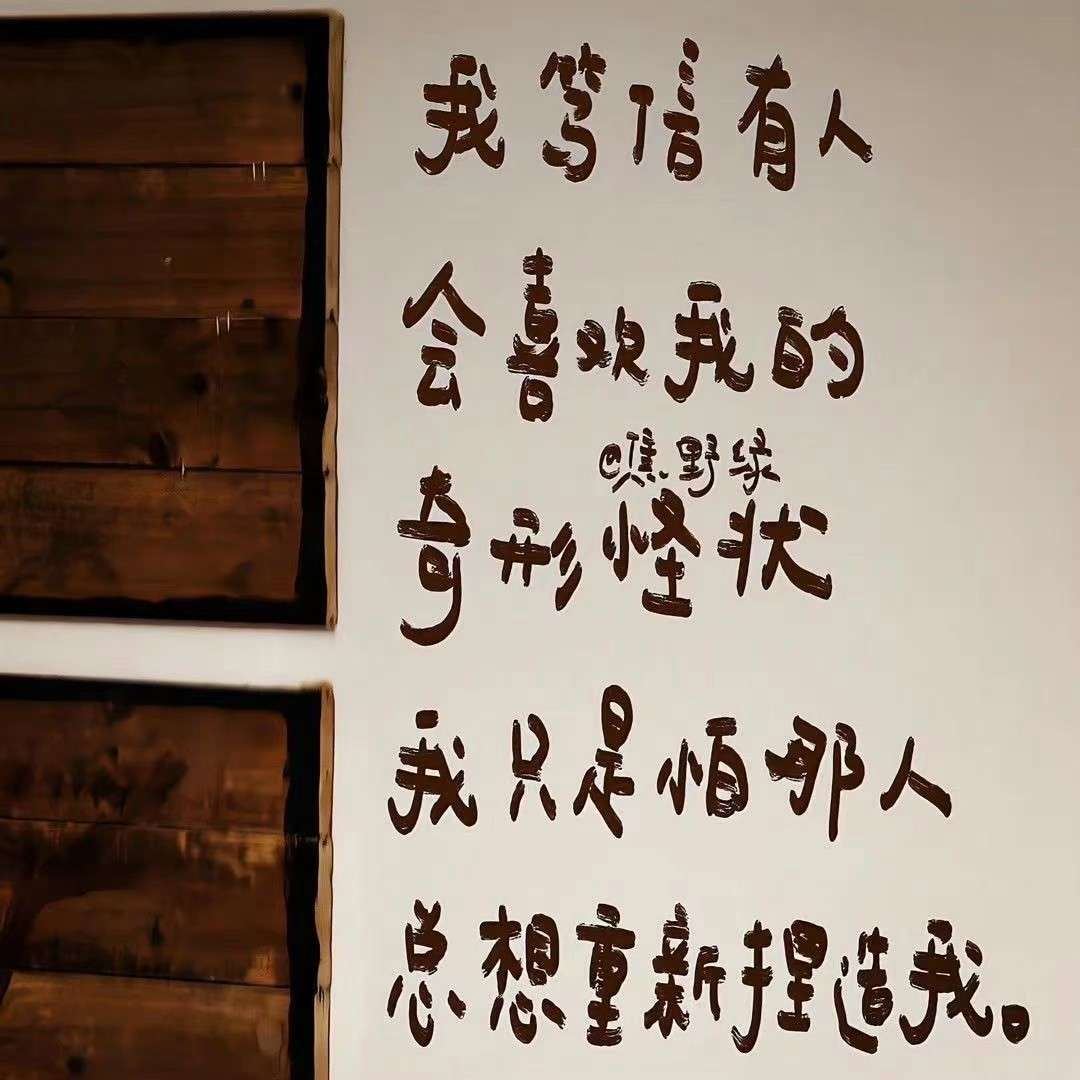 我笃信有人
会喜欢我的
@蕉野绿
奇形怪状
我只是怕那人
总想重新捏造我。